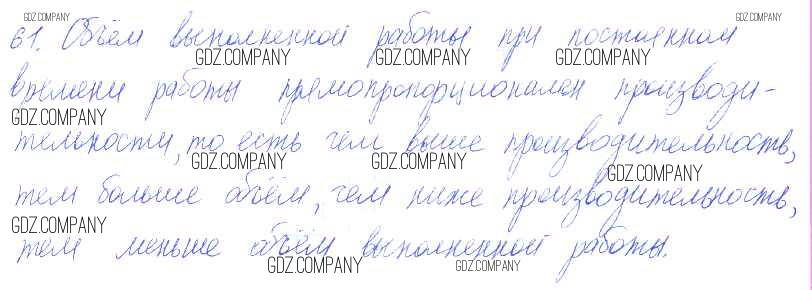 GDZ.COMPANY GDZ.COMPANY
61. Объём выполненной работы при постоянном
GDZ.COMPANY GDZ.COMPANY GDZ.COMPANY
времени работы прямопропорционален производи-
GDZ.COMPANY
тельности, то есть чем выше производительность,
GDZ.COMPANY GDZ.COMPANY GDZ.COMPANY
тем больше объём, чем ниже производительность,
GDZ.COMPANY
тем меньше объём выполненной работы.
GDZ.COMPANY GDZ.COMPANY